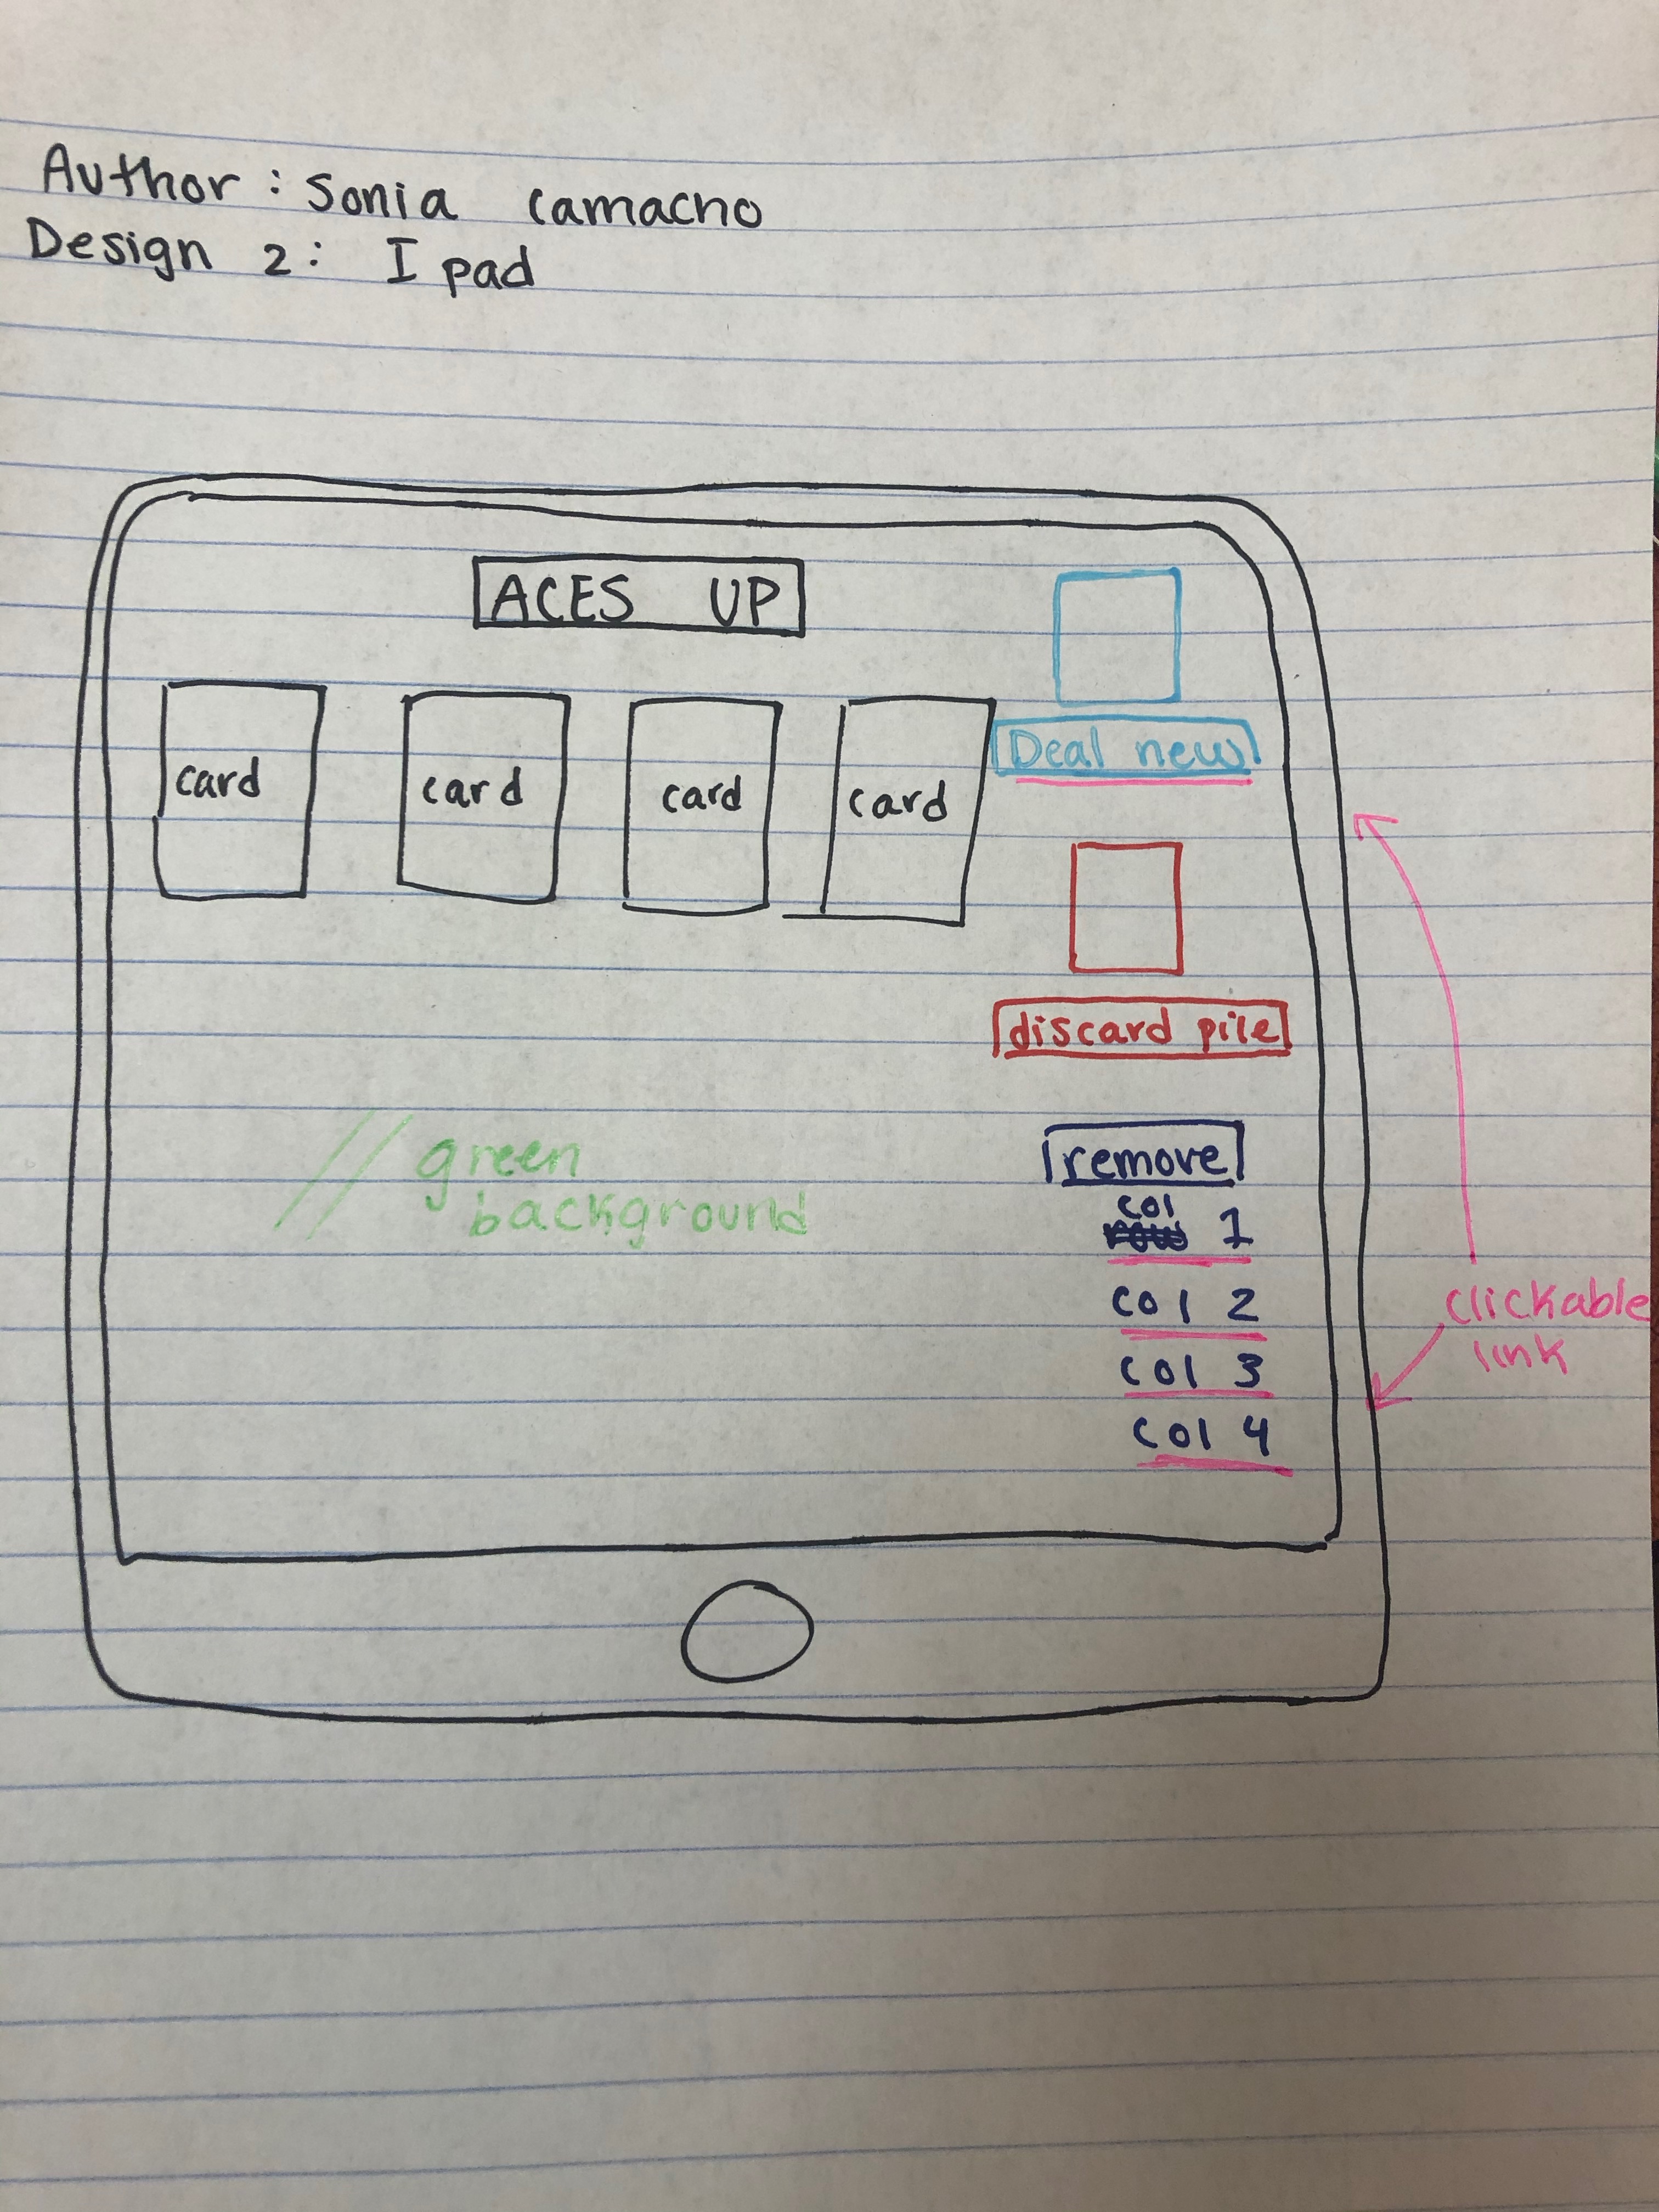 Author : Sonia Camacho
Design 2: I pad
ACES UP
card
card
card
card
Deal new
discard pile
// green
background
remove
col 1
col 2
col 3
col 4
clickable
link